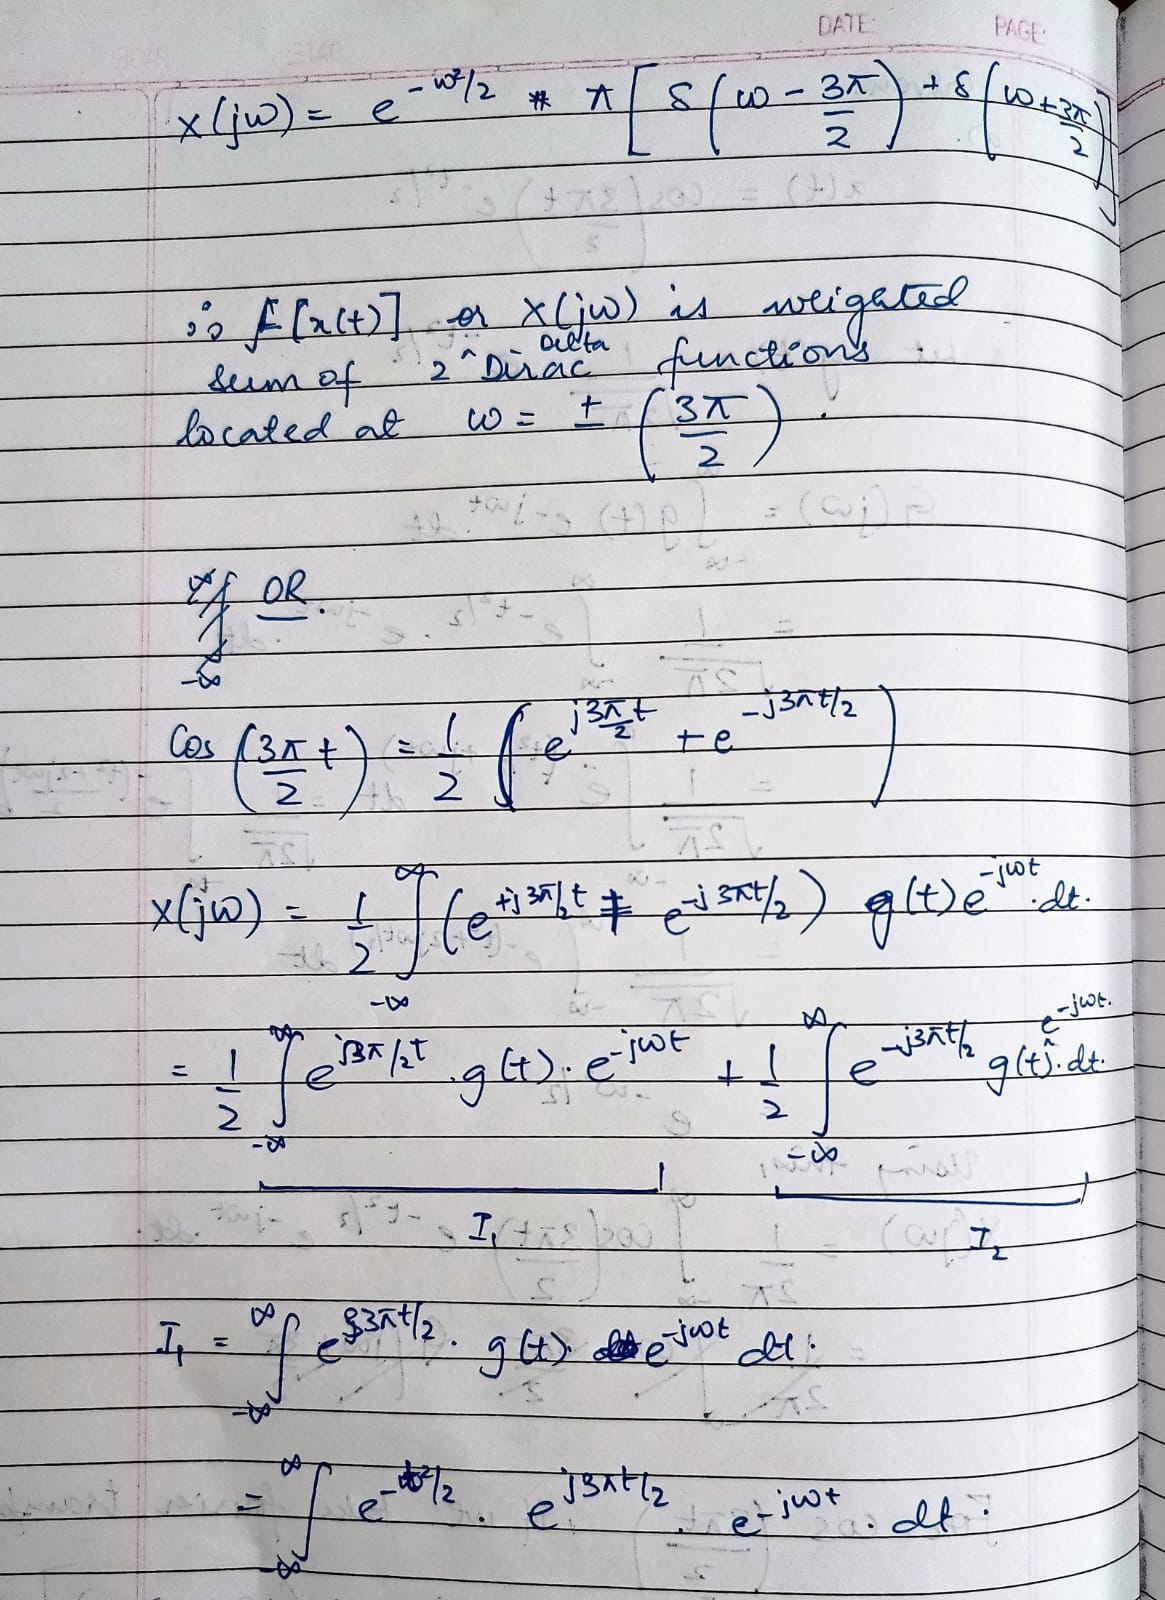 DATE: PAGE:
x(jω) = e^{-ω²/2} * π [ δ(ω - 3π/2) + δ(ω + 3π/2) ]
∴ F[x(t)] or X(jω) is weighted
sum of 2 ^ Dirac Delta functions
located at ω = ± (3π/2).
OR.
∞ ∫ -∞
Cos (3π/2 t) = 1/2 ( e^{j3π/2 t} + e^{-j3πt/2} )
X(jω) = 1/2 ∫_{-∞}^{∞} (e^{+j3π/2 t} + e^{-j3πt/2}) g(t) e^{-jωt} . dt.
= 1/2 ∫_{-∞}^{∞} e^{j3π/2 t} . g(t) . e^{-jωt} + 1/2 ∫_{-∞}^{∞} e^{-j3πt/2} g(t) ^ e^{-jωt} . dt.
I₁ I₂
I₁ = ∫_{-∞}^{∞} e^{j3πt/2} . g(t) . e^{-jωt} dt.
= ∫_{-∞}^{∞} e^{-t²/2} . e^{j3πt/2} . e^{-jωt} . dt.